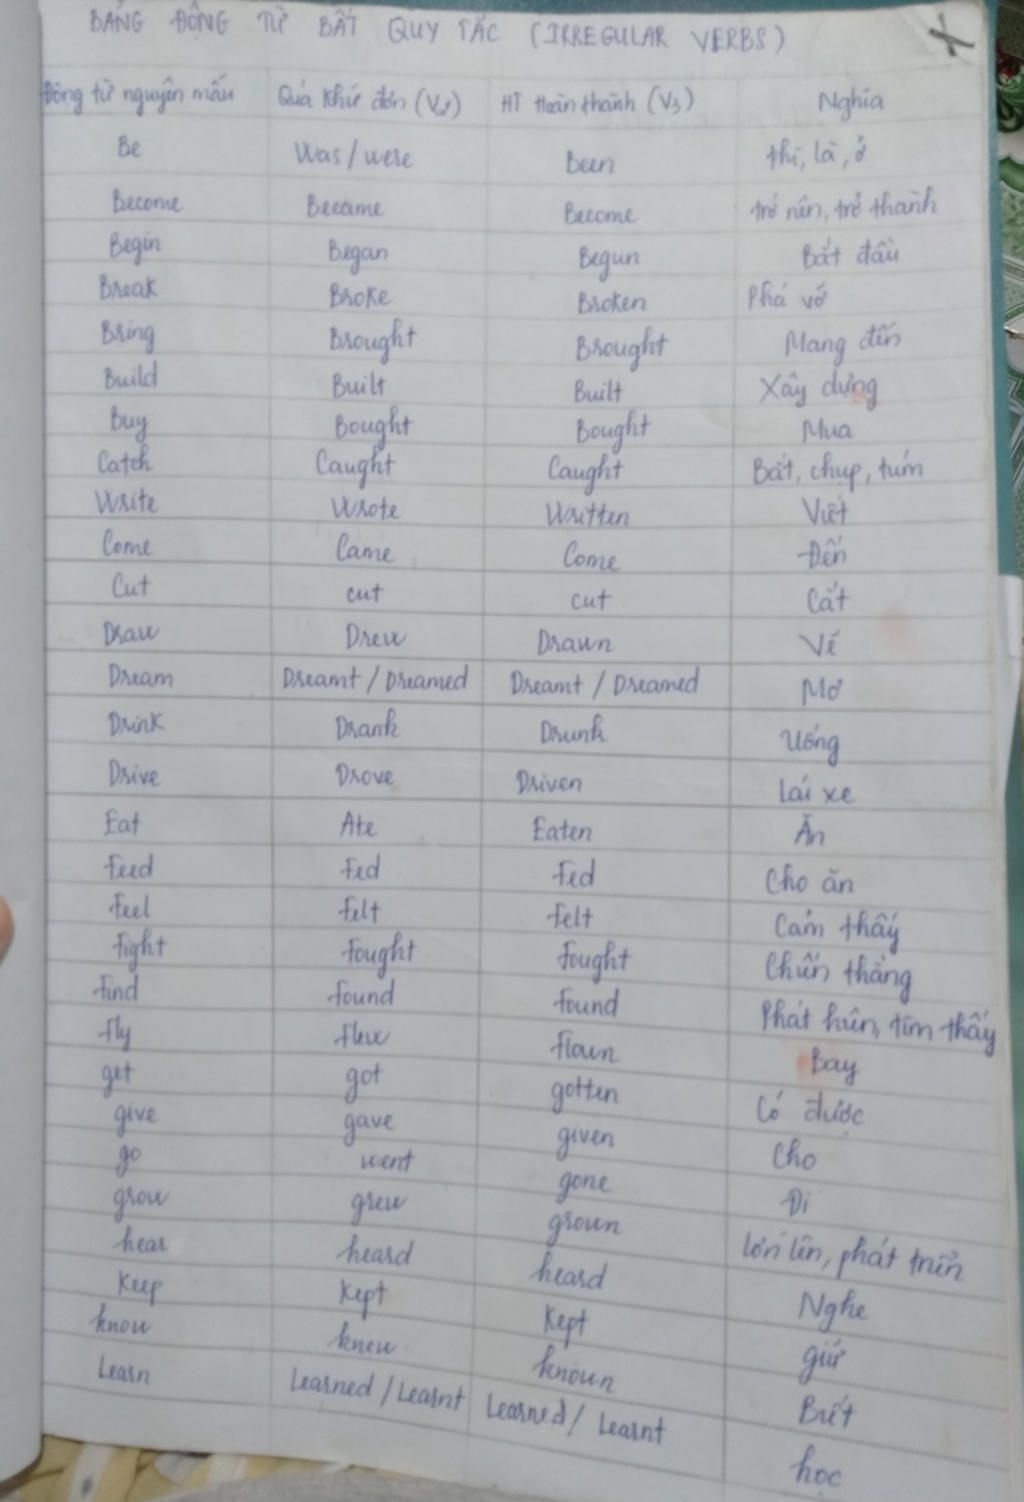 BẢNG ĐỘNG TỪ BẤT QUY TẮC (IRREGULAR VERBS)
Động từ nguyên mẫu Quá khứ đơn (V2) HT Hoàn thành (V3) Nghĩa
Be Was / were Been thì, là, ở
Become Became Become trở nên, trở thành
Begin Began Begun Bắt đầu
Break Broke Broken Phá vỡ
Bring Brought Brought Mang đến
Build Built Built Xây dựng
Buy Bought Bought Mua
Catch Caught Caught Bắt, chụp, túm
Write Wrote Written Viết
Come Came Come Đến
Cut cut cut Cắt
Draw Drew Drawn Vẽ
Dream Dreamt / Dreamed Dreamt / Dreamed Mơ
Drink Drank Drunk Uống
Drive Drove Driven Lái xe
Eat Ate Eaten Ăn
Feed Fed Fed Cho ăn
Feel Felt Felt Cảm thấy
Fight Fought Fought Chiến thắng
Find Found Found Phát hiện, tìm thấy
fly flew flown Bay
get got gotten Có được
give gave given Cho
go went gone Đi
grow grew grown lớn lên, phát triển
hear heard heard Nghe
Keep Kept Kept giữ
know knew known Biết
Learn Learned / Learnt Learned / Learnt học